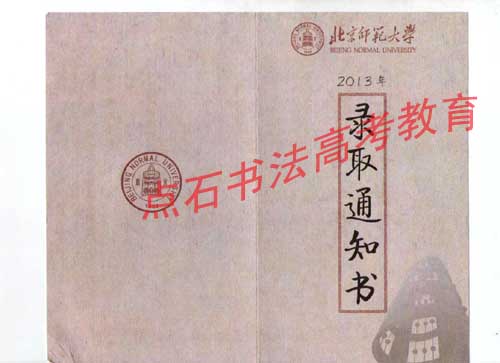 北京师範大学
BEIJING NORMAL UNIVERSITY
2013年
录取通知书
BEIJING NORMAL UNIVERSITY
1902
点石书法高考教育